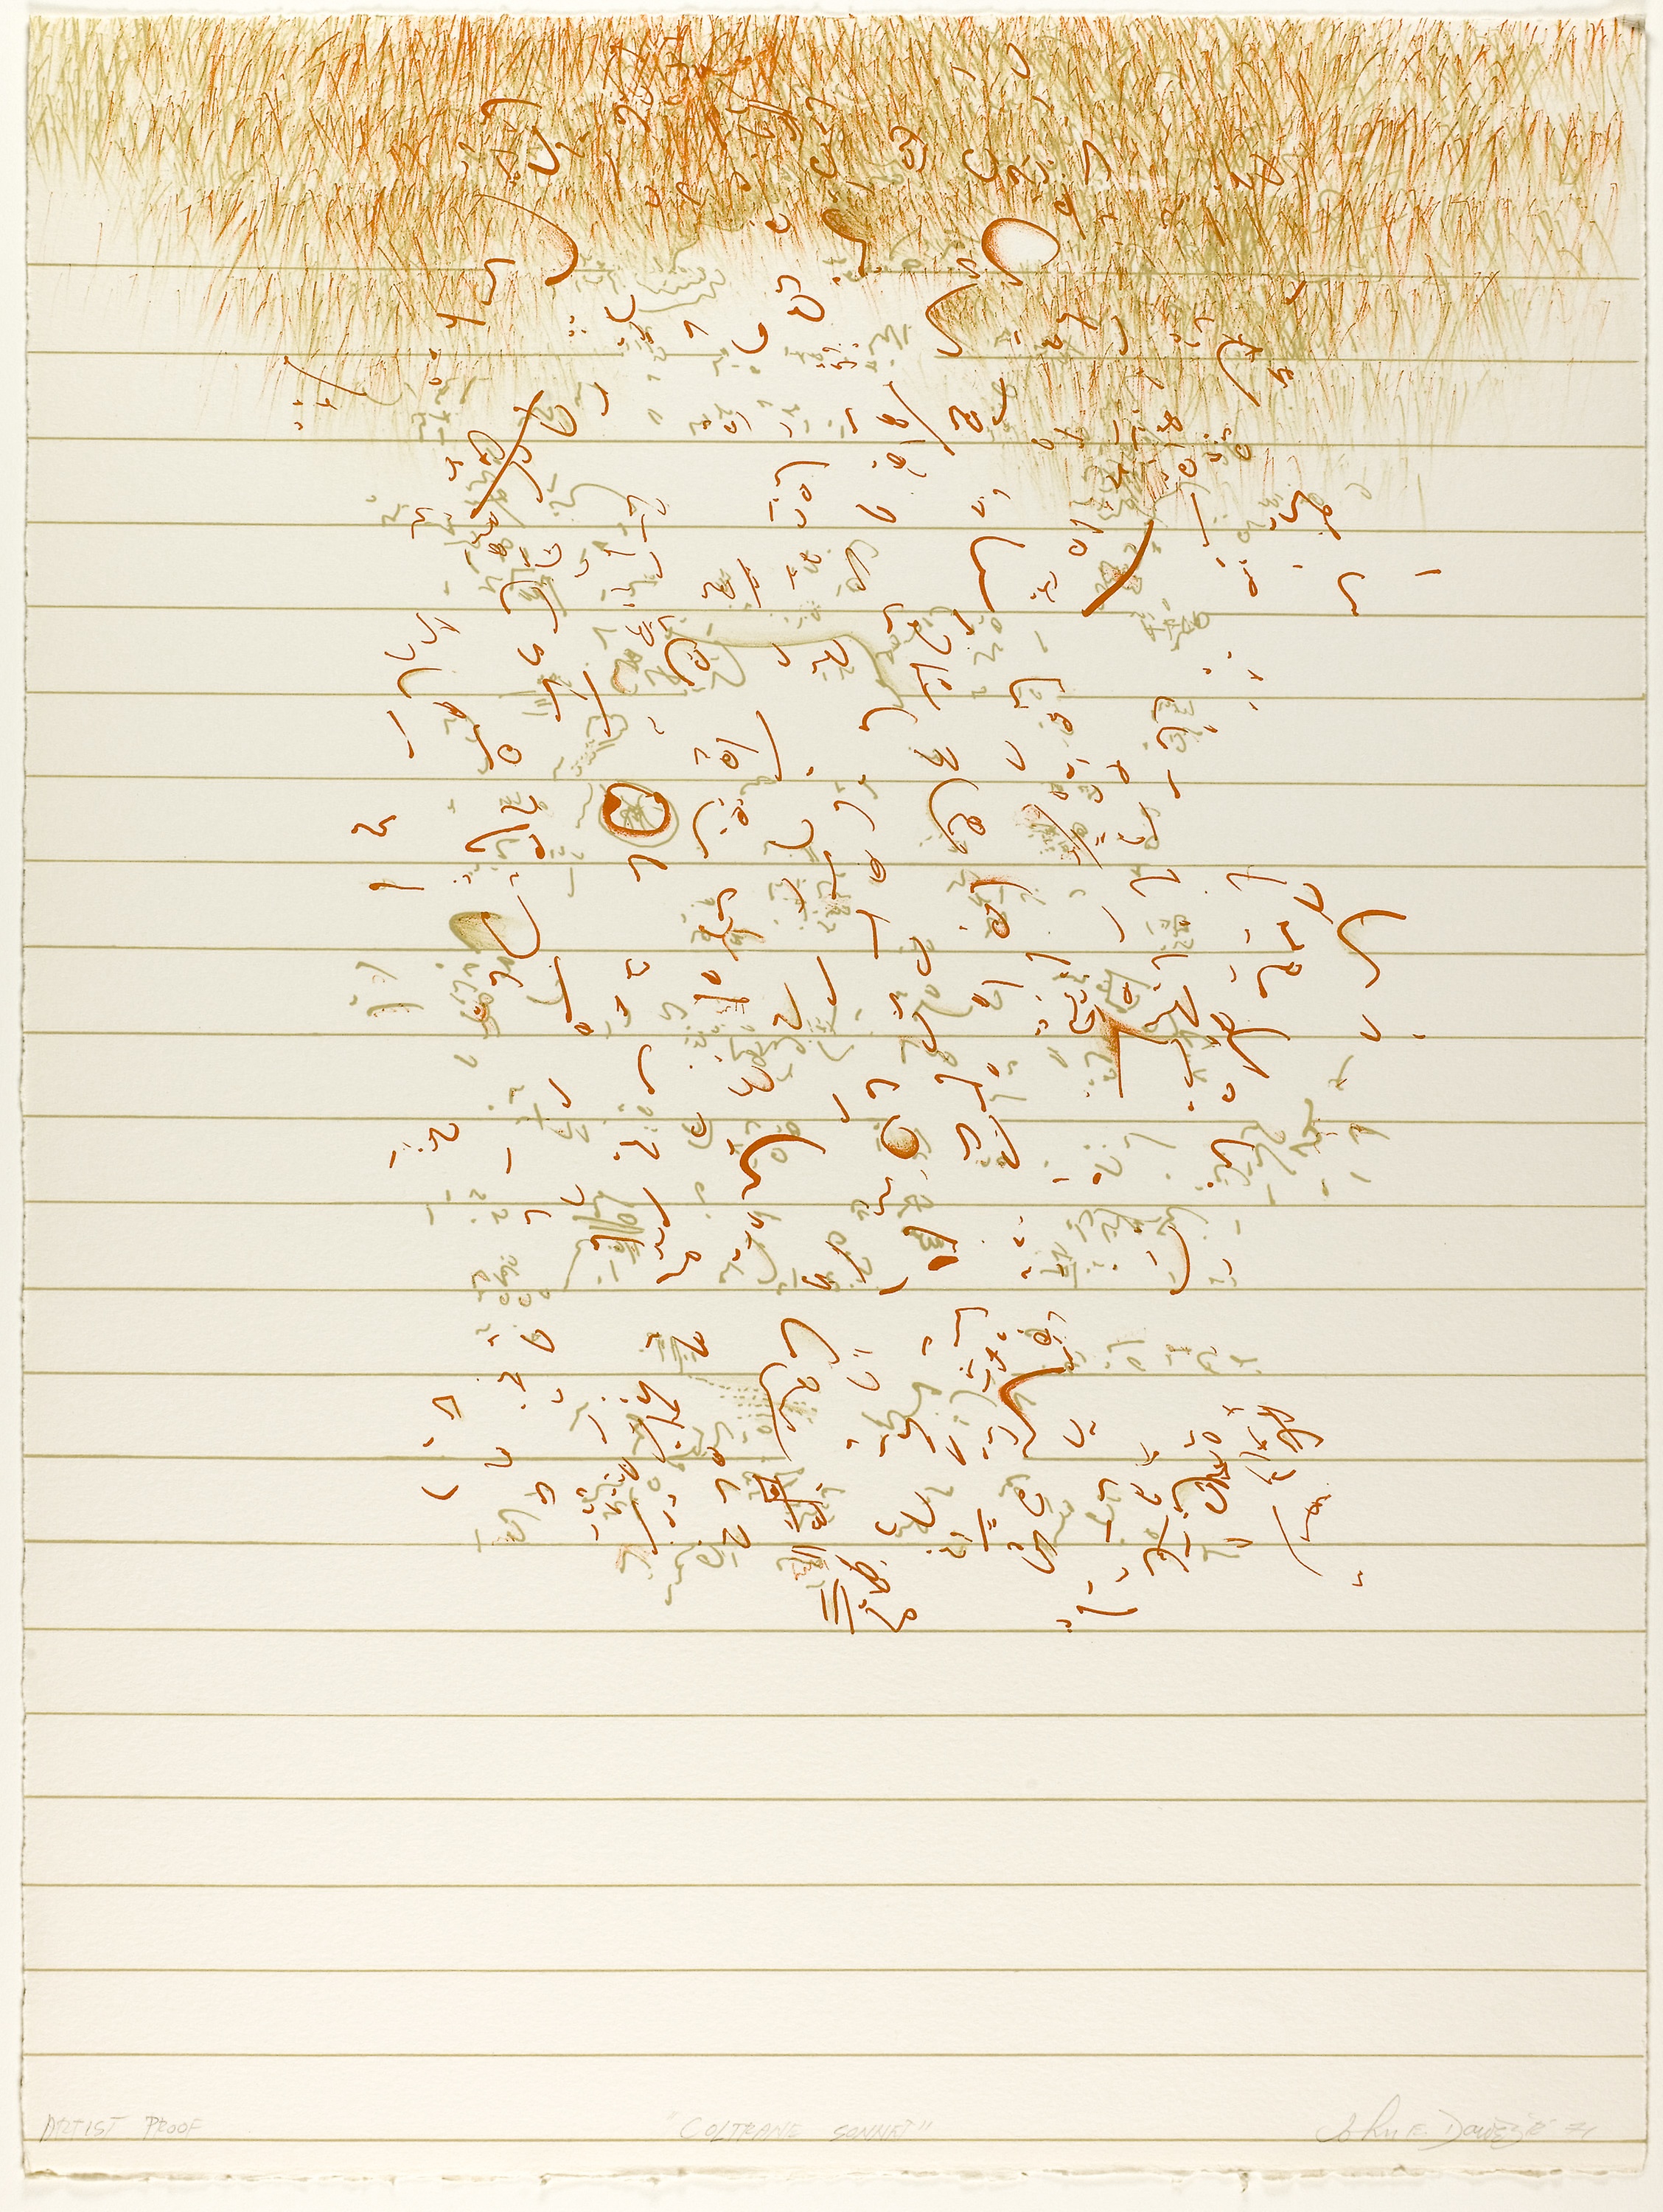 ARTIST PROOF
"COLTRANE SONNET"
John E. Dowell Jr 71